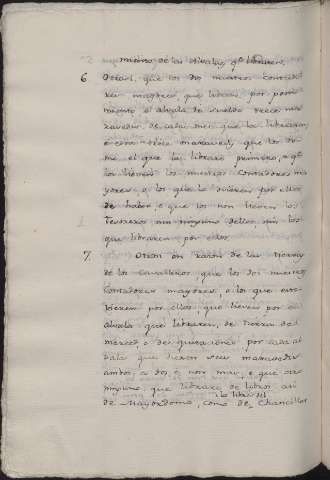 miento de los alvalas, qe libraren,
6 Otrosi, que los dos nuestros Contado-
res mayores, que libran, por pone-
miento o alvala de sueldo trece ma-
ravedis, de cada uno que la libraren,
e cada dose maravedis, que los to-
me el que las librare primero, e qe
los lieven los nuestros Contadores ma-
yores, o los que lo ovieren por ellos
de haber, e que los non lieven los
Tesoreros nin ninguno dellos, nin los
que libraren por ellos.
7. Otrosi en razon de las tierras
de los Cavalleros que los dos nuestros
Contadores mayores, o los que
ovieren por ellos, que lieven por
alvala que libraren, de tierra o de
merced, o de quitaciones por cada al-
bala que fieren seis maravedis
ambos, a dos, e non mas, e que
ninguno, que librare de libros, asi
de los libros del
de Mayordomo, como de Chanciller